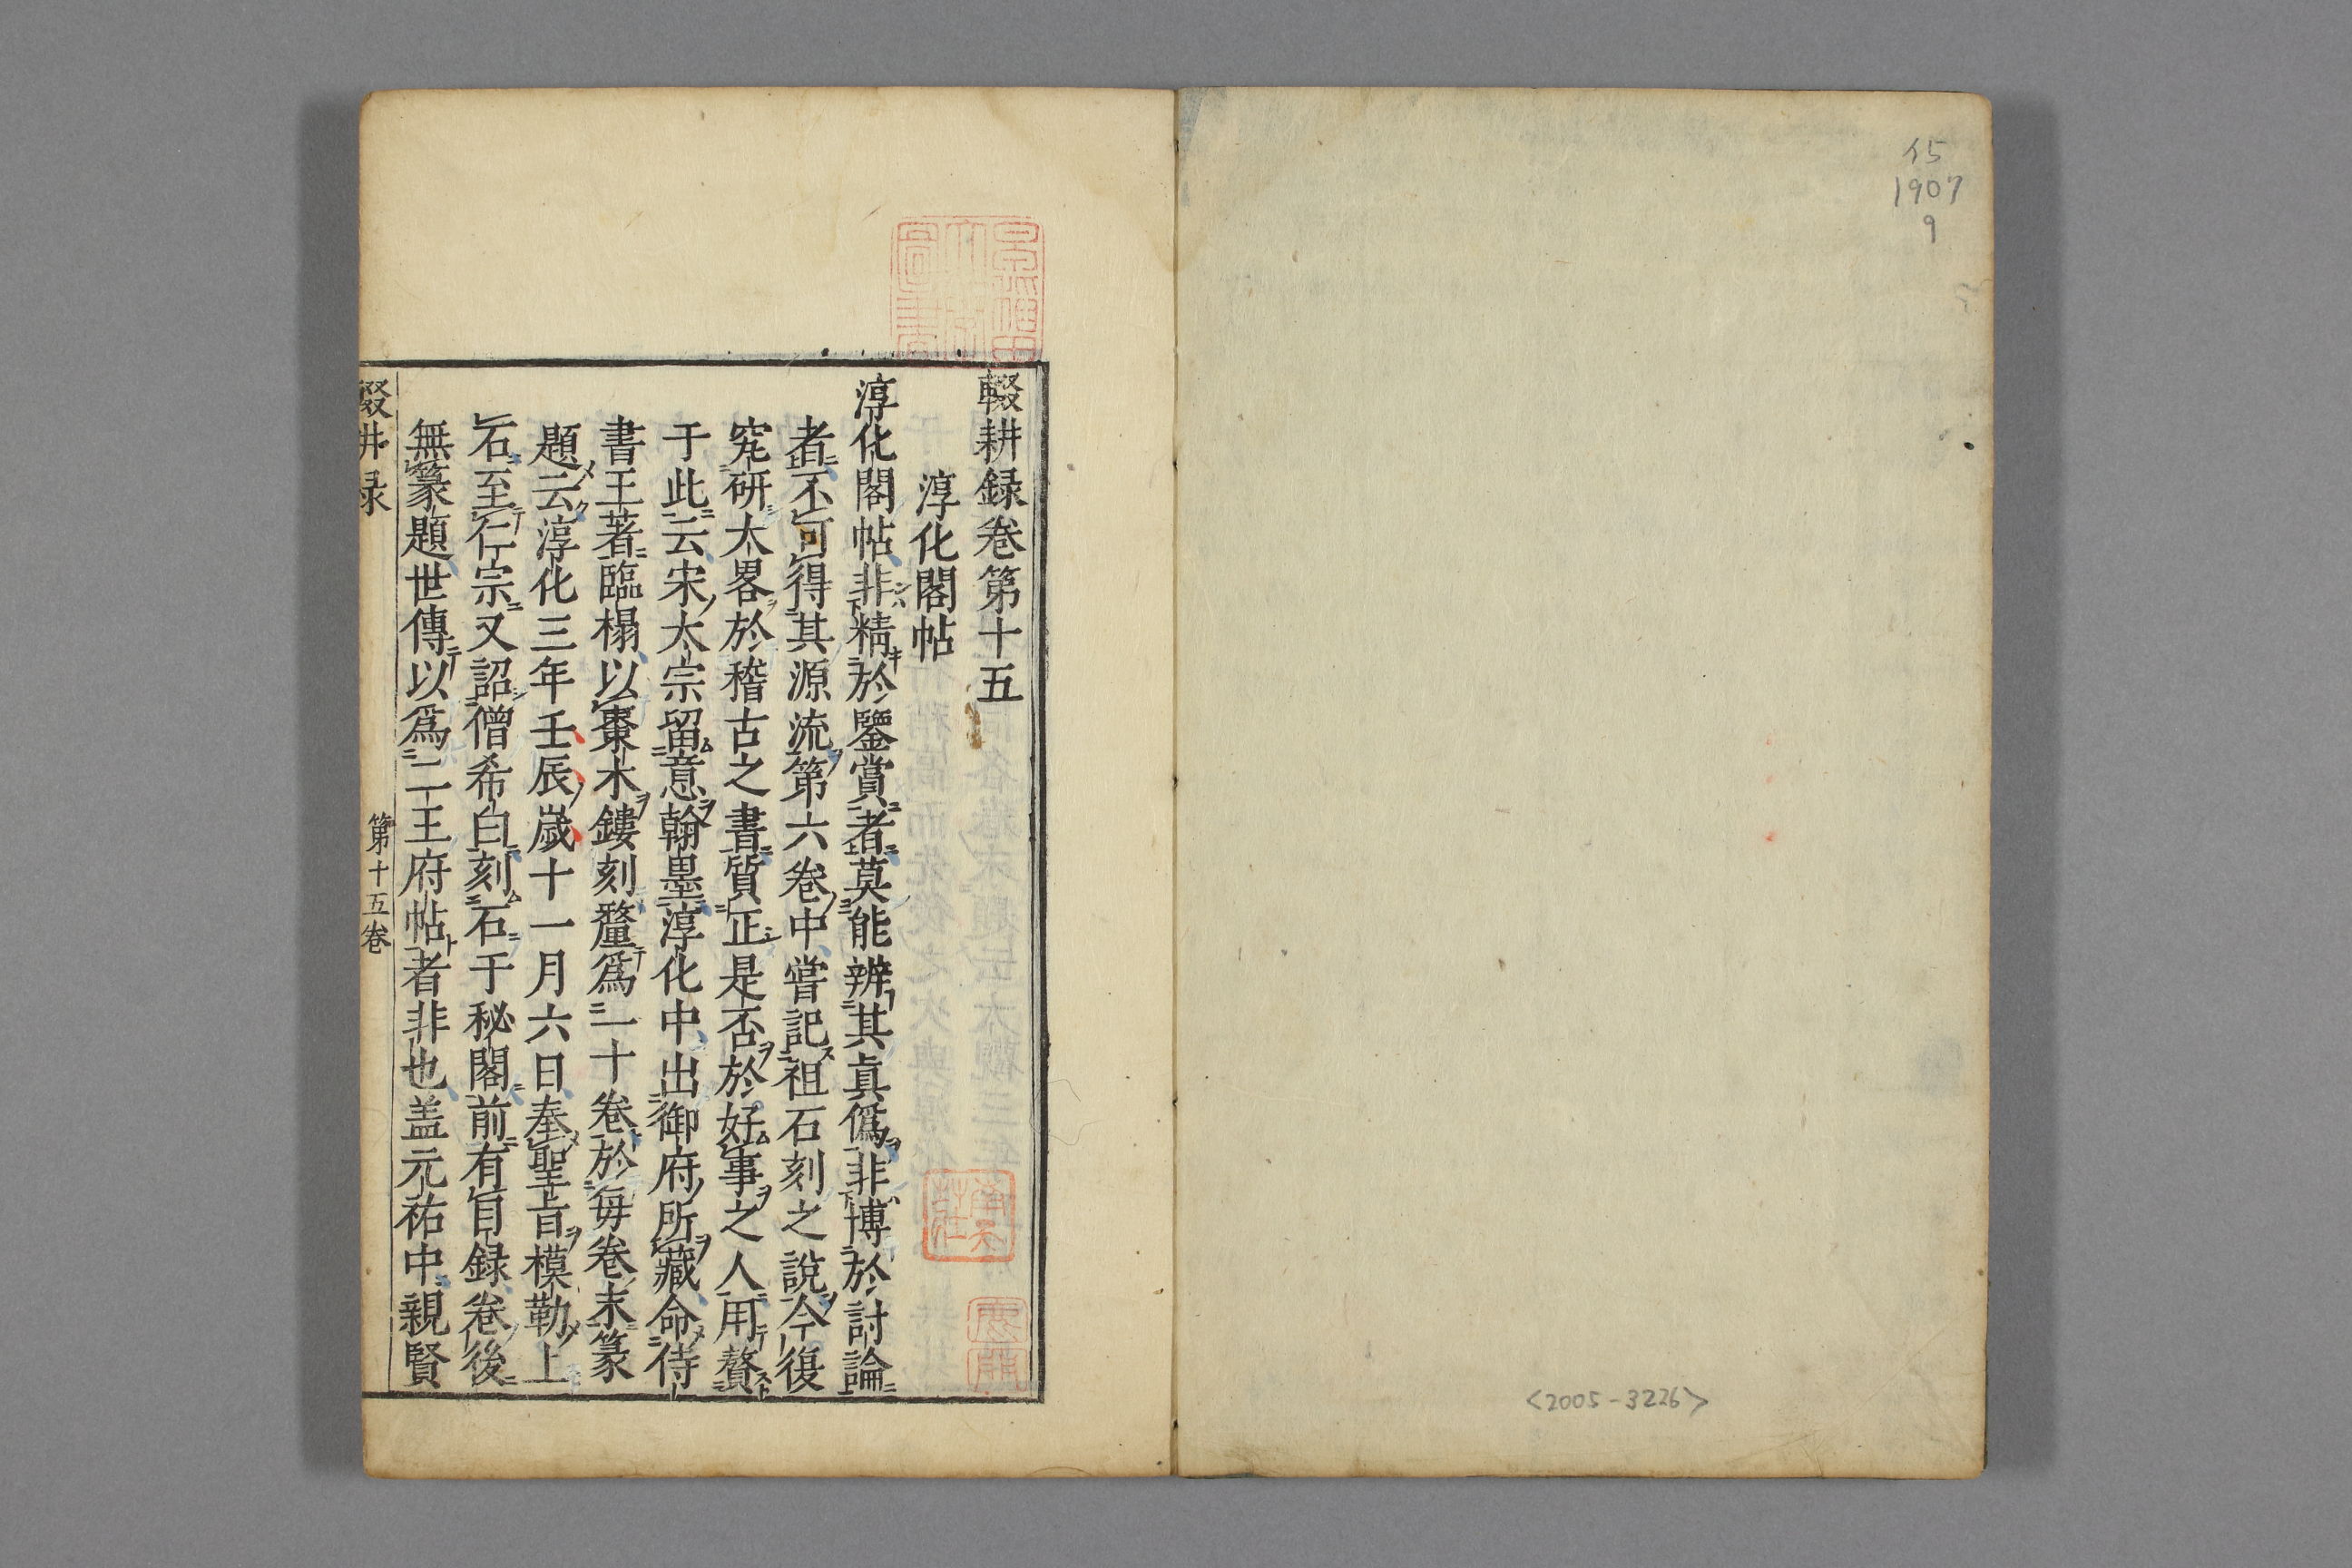 15
1907
9
<2005-3226>
輟耕録卷第十五
淳化閣帖
淳化閣帖非精於鑒賞者莫能辨其眞僞非博於討論
者不可得其源流第六卷中嘗記祖石刻之說今復
究研大畧於稽古之書質正是否於好事之人用贅
于此云宋太宗留意翰墨淳化中出御府所藏命侍
書王著臨榻以棗木鏤刻釐爲一十卷於每卷末篆
題云淳化三年壬辰歲十一月六日奉聖旨模勒上
石至仁宗又詔僧希白刻石于秘閣前有目録卷後
無篆題世傳以爲二王府帖者非也盖元祐中親賢
輟耕録
第十五卷